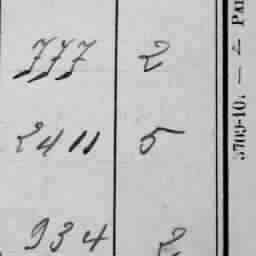 777 2
2411 5
934 2
5709-10. — 2 Par